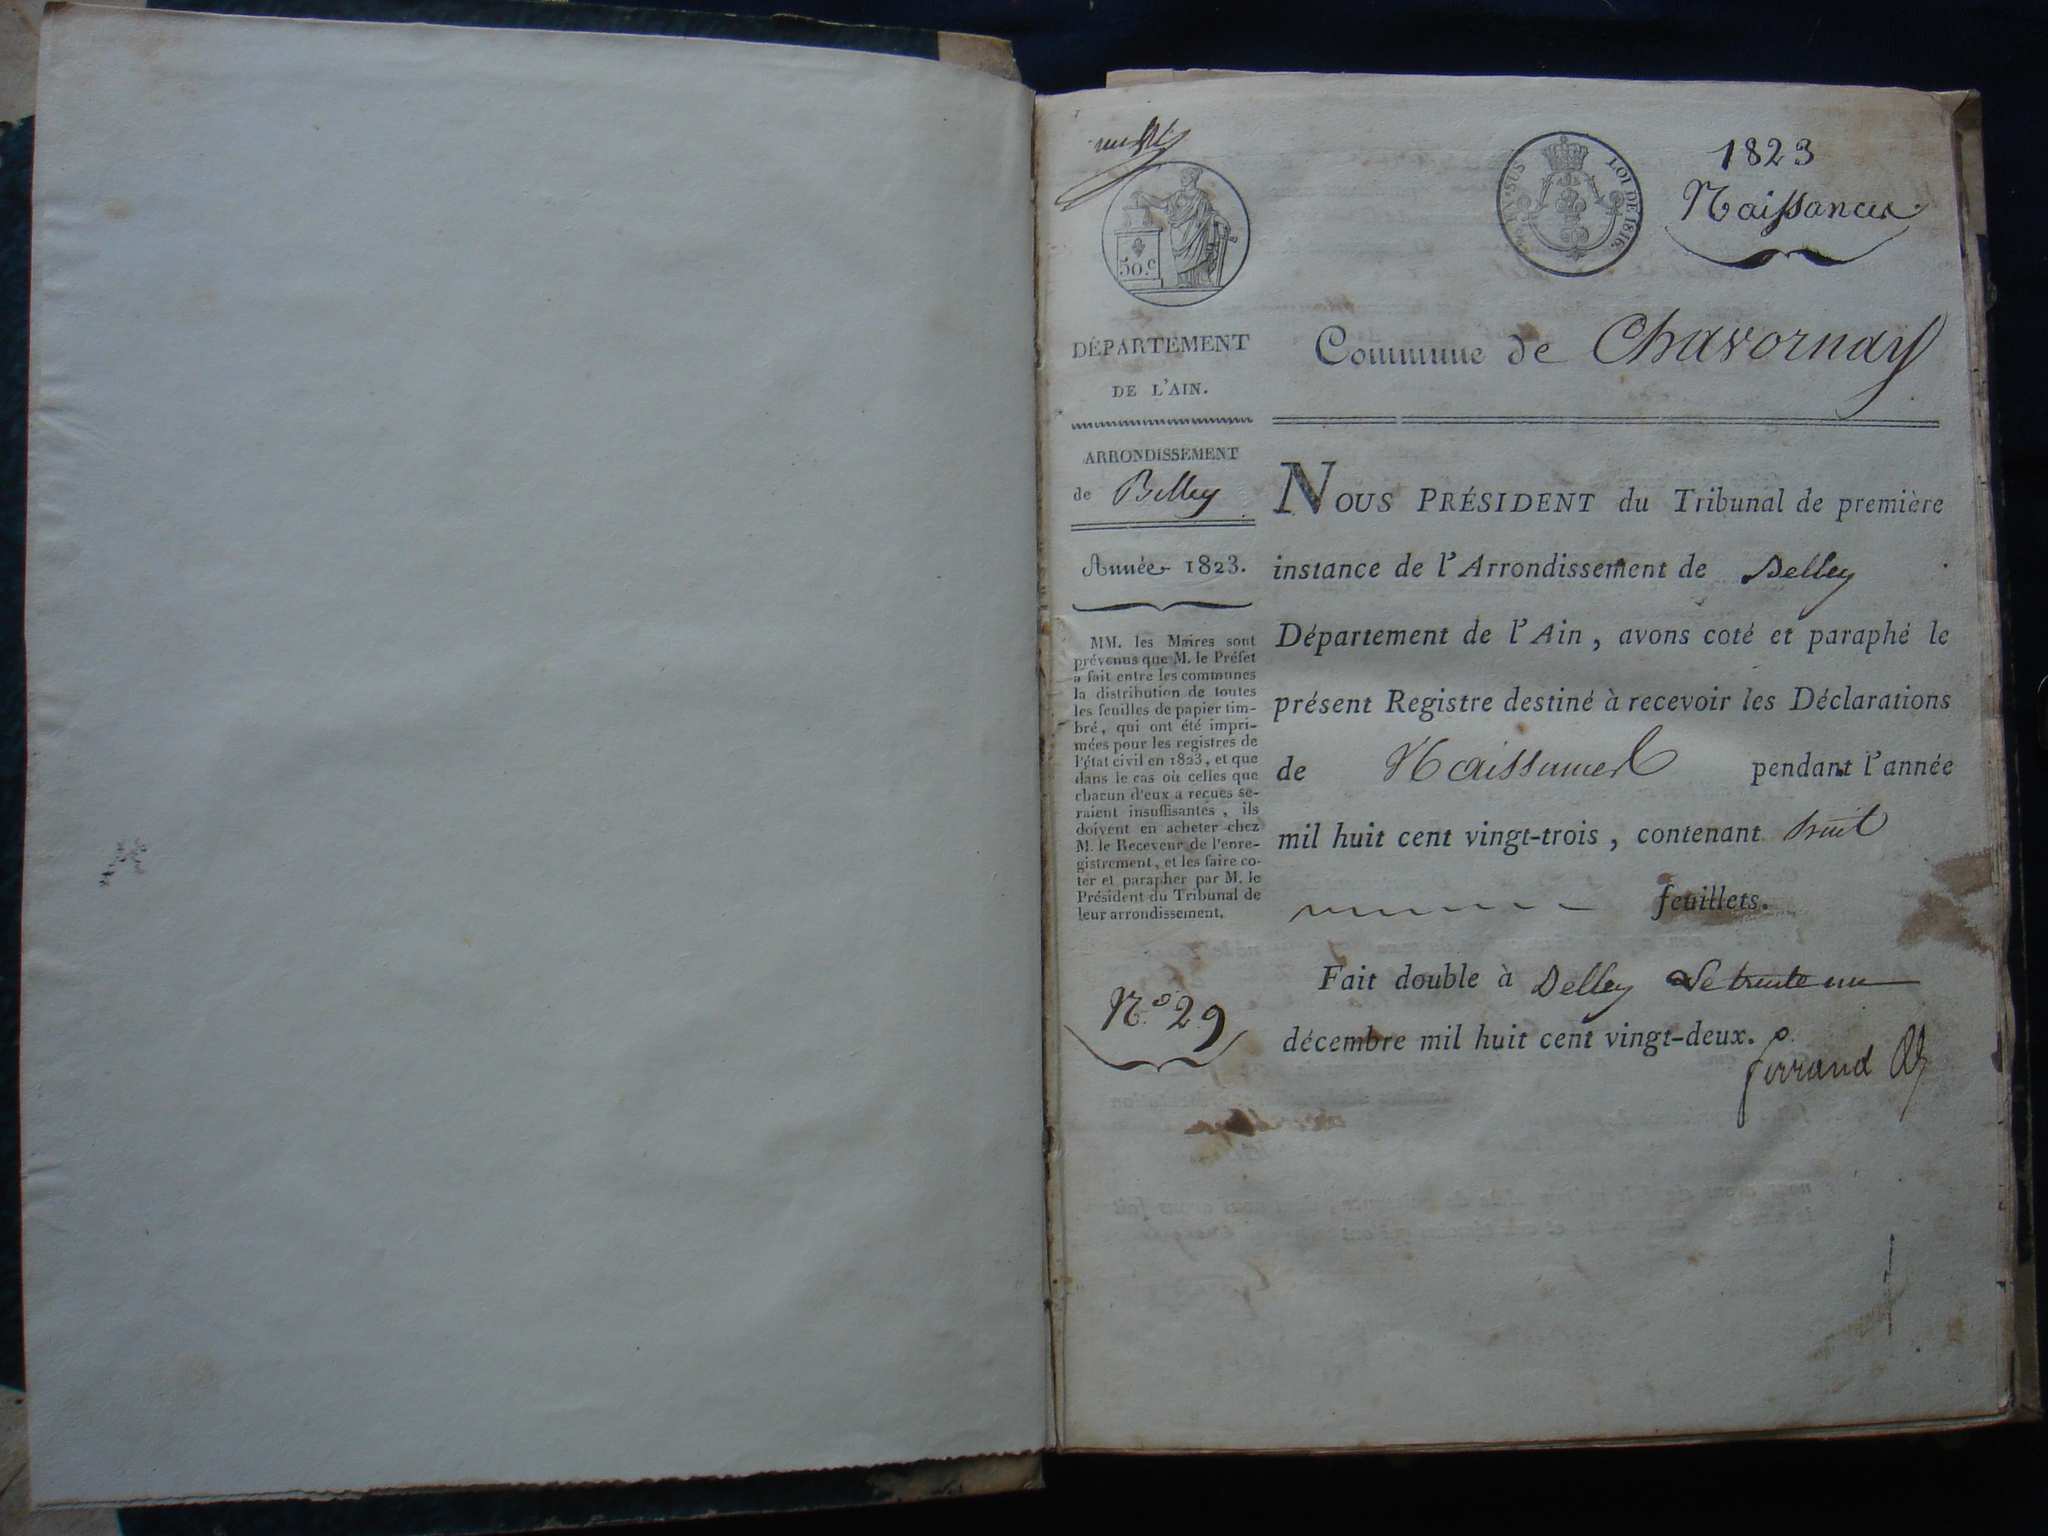 1823
Naissances
50.c
EN SUS
LOI DE 1816.
DÉPARTEMENT
DE L'AIN.
ARRONDISSEMENT
de Belley
Année 1823.
MM. les Maires sont
prévenus que M. le Préfet
a fait entre les communes
la distribution de toutes
les feuilles de papier tim-
bré, qui ont été impri-
mées pour les registres de
l'état civil en 1823, et que
dans le cas où celles que
chacun d'eux a reçues se-
raient insuffisantes, ils
doivent en acheter chez
M. le Receveur de l'enre-
gistrement, et les faire co-
ter et parapher par M. le
Président du Tribunal de
leur arrondissement.
N.o 29
Commune de Chavornay
NOUS PRÉSIDENT du Tribunal de première
instance de l'Arrondissement de Belley
Département de l'Ain, avons coté et paraphé le
présent Registre destiné à recevoir les Déclarations
de Naissances pendant l'année
mil huit cent vingt-trois, contenant huit
feuillets.
Fait double à Belley Le trente un
décembre mil huit cent vingt-deux.
ferrand